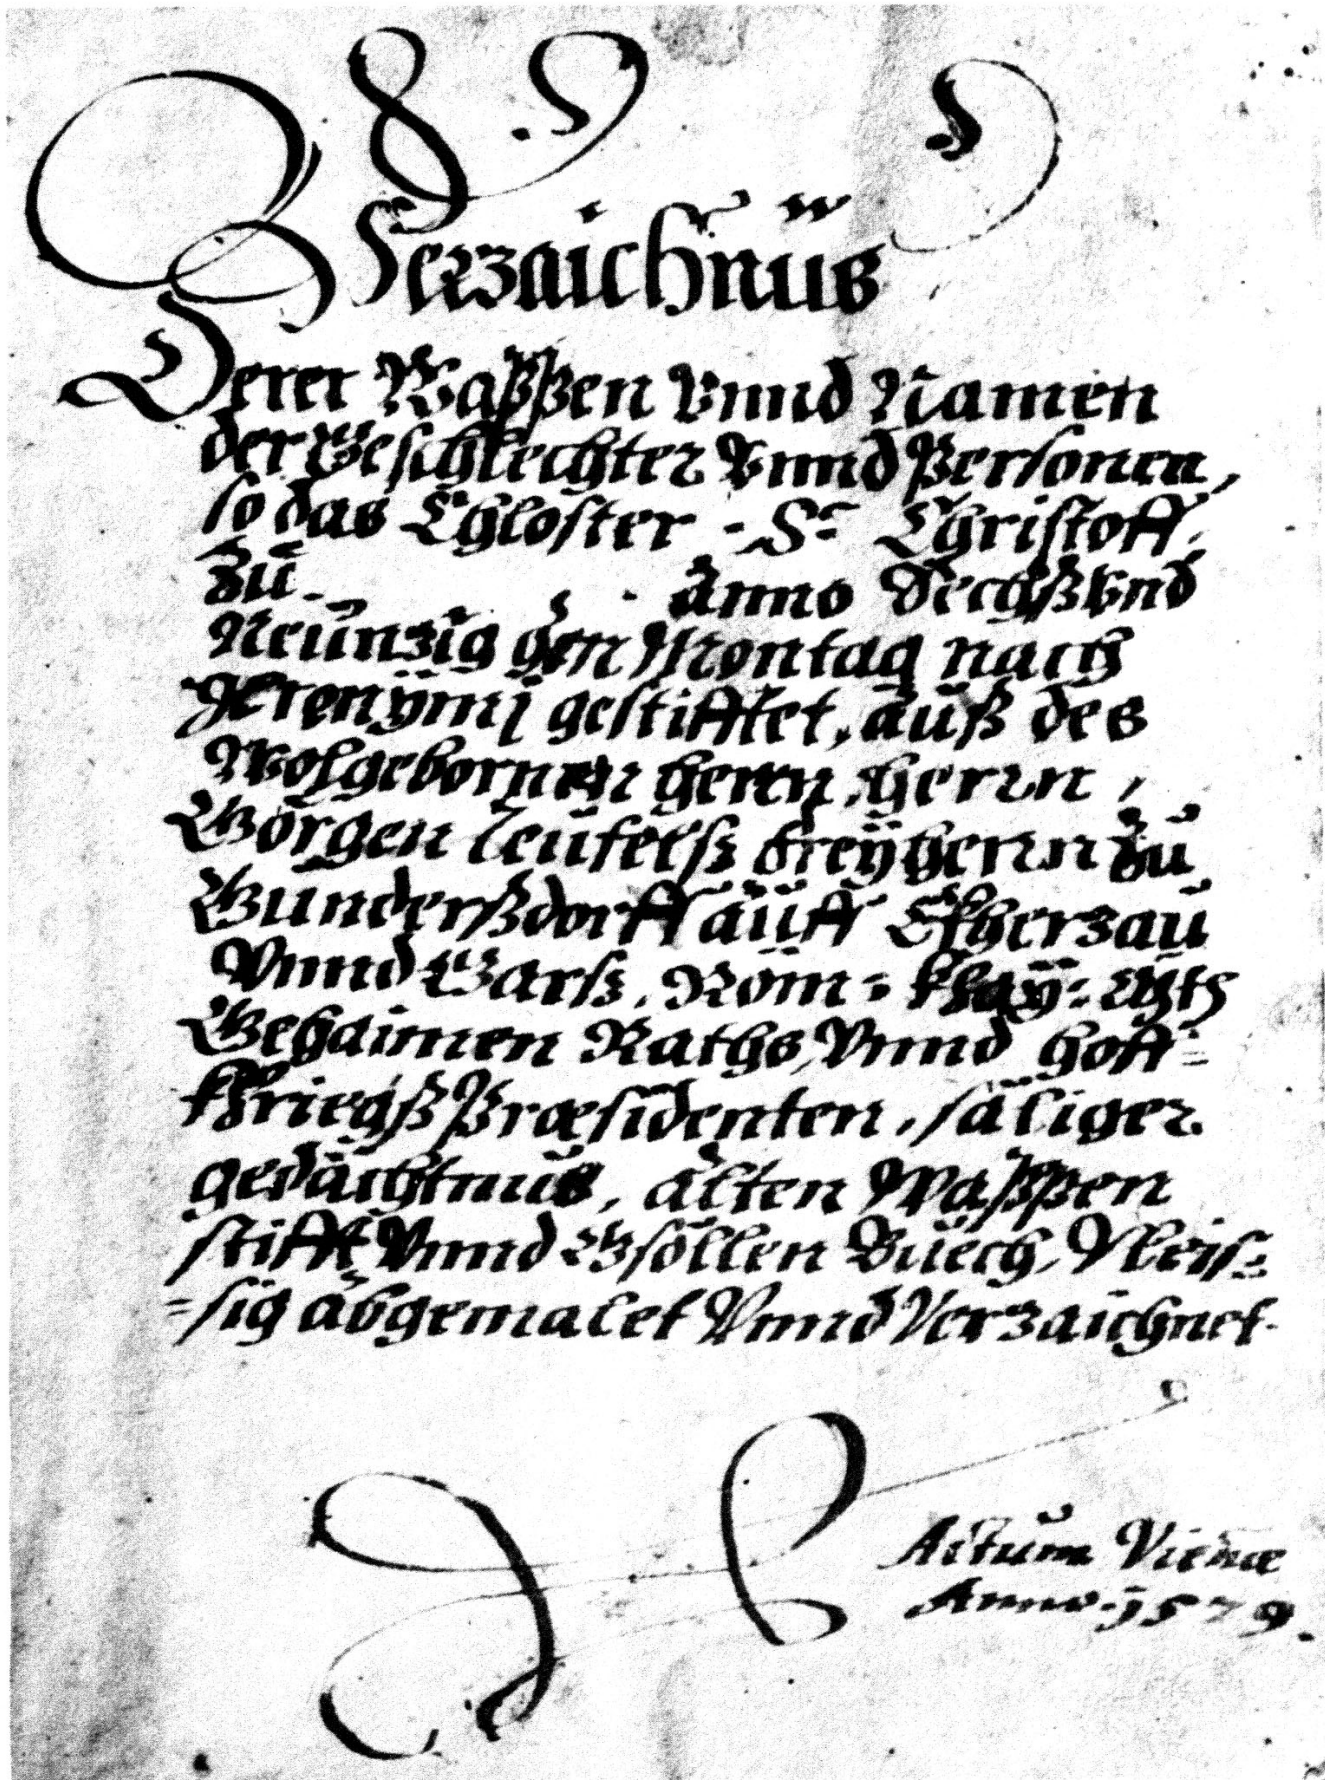 Verzaichnüs
Derer Wappen Vnnd Namen
der Geschlechter Vnnd Personen,
so das Chloster - St Christoff
Zü Anno Sechßvnd
Neünzig den Montag nach
Jeronÿmj gestifftet, aüß des
Wolgebornnen herrn, herrn,
Görgen Teüfelß freÿherrn Zü
Gunderßdorff aüff Ekherzaü
Vnnd Garß, Röm: Khaÿ: Mtt
Gehaimen Raths, Vnnd hoff=
Khriegß Præsidenten, säliger
gedächtnus, alten Wappen
stifft Vnnd Gsöllen Büech, Vleis=
=sig abgemalet Vnnd Verzaichnet.
Actum Viennæ
Anno 1579.